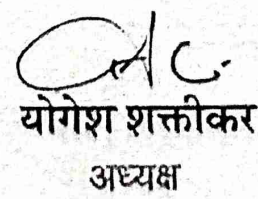 योगेश शक्तीकर
अध्यक्ष